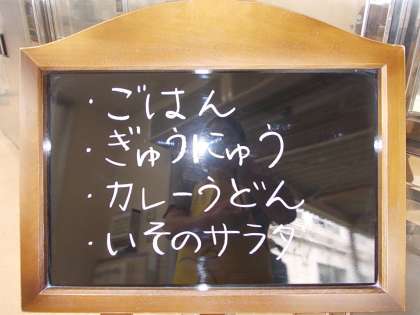 ・ごはん
・ぎゅうにゅう
・カレーうどん
・いそのサラダ